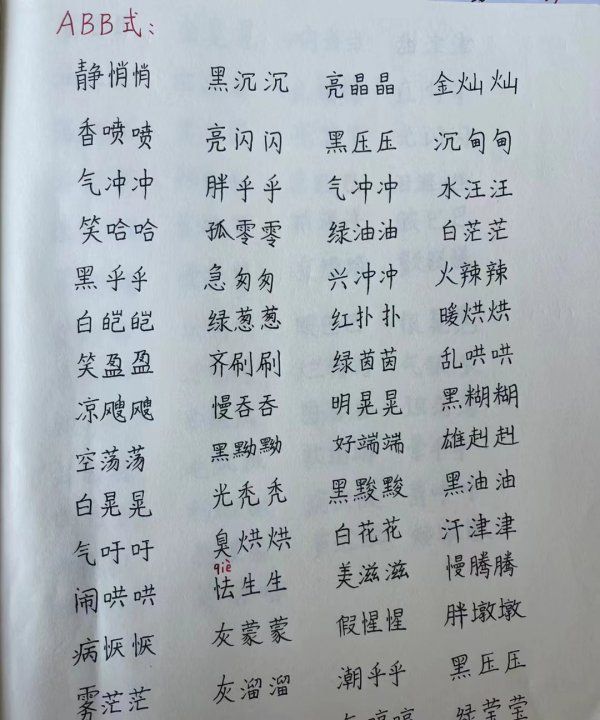 ABB式:
静悄悄 黑沉沉 亮晶晶 金灿灿
香喷喷 亮闪闪 黑压压 沉甸甸
气冲冲 胖乎乎 气冲冲 水汪汪
笑哈哈 孤零零 绿油油 白茫茫
黑乎乎 急匆匆 兴冲冲 火辣辣
白皑皑 绿葱葱 红扑扑 暖烘烘
笑盈盈 齐刷刷 绿茵茵 乱哄哄
凉飕飕 慢吞吞 明晃晃 黑糊糊
空荡荡 黑黝黝 好端端 雄赳赳
白晃晃 光秃秃 黑黢黢 黑油油
气吁吁 臭烘烘 白花花 汗津津
qiè
闹哄哄 怯生生 美滋滋 慢腾腾
病恹恹 灰蒙蒙 假惺惺 胖墩墩
雾茫茫 灰溜溜 潮乎乎 黑压压
绿莹莹